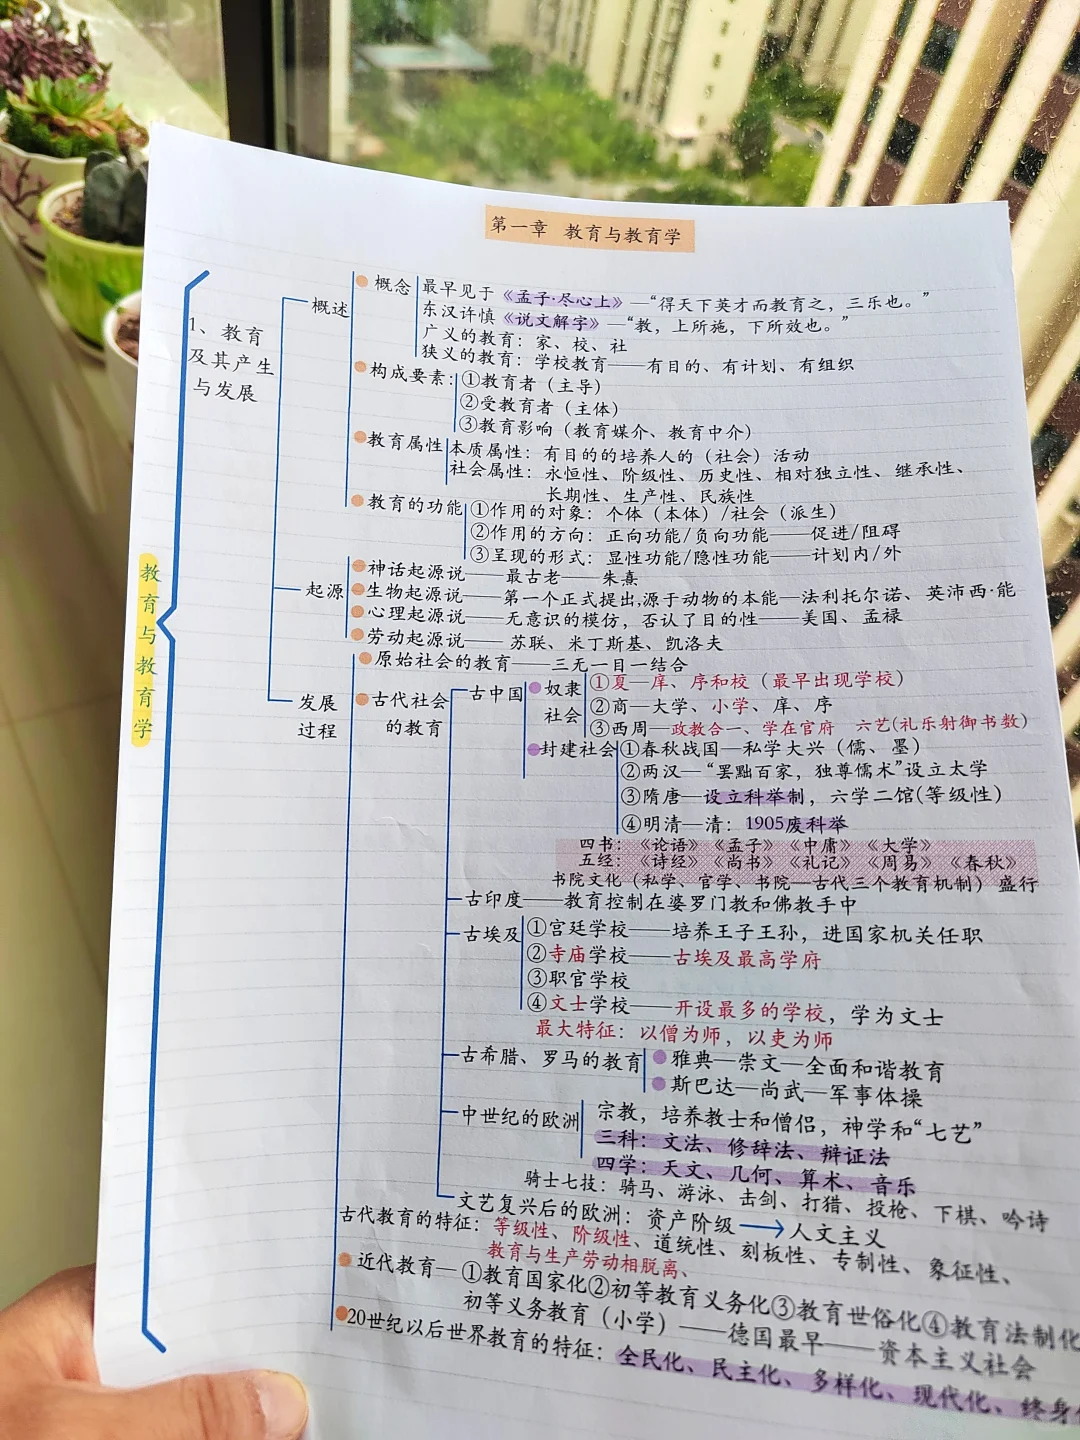 第一章 教育与教育学
教育与教育学
1、教育
及其产生
与发展
概述
概念
最早见于《孟子·尽心上》—“得天下英才而教育之，三乐也。”
东汉许慎《说文解字》—“教，上所施，下所效也。”
广义的教育：家、校、社
狭义的教育：学校教育——有目的、有计划、有组织
构成要素：
①教育者（主导）
②受教育者（主体）
③教育影响（教育媒介、教育中介）
教育属性
本质属性：有目的的培养人的（社会）活动
社会属性：永恒性、阶级性、历史性、相对独立性、继承性、
长期性、生产性、民族性
教育的功能
①作用的对象：个体（本体）/社会（派生）
②作用的方向：正向功能/负向功能——促进/阻碍
③呈现的形式：显性功能/隐性功能——计划内/外
起源
神话起源说——最古老——朱熹
生物起源说——第一个正式提出,源于动物的本能—法利托尔诺、英沛西·能
心理起源说——无意识的模仿，否认了目的性——美国、孟禄
劳动起源说——苏联、米丁斯基、凯洛夫
发展
过程
原始社会的教育——三无一目一结合
古代社会
的教育
古中国
奴隶
社会
①夏—庠、序和校（最早出现学校）
②商—大学、小学、庠、序
③西周—政教合一、学在官府 六艺(礼乐射御书数)
封建社会
①春秋战国—私学大兴（儒、墨）
②两汉—“罢黜百家，独尊儒术”设立太学
③隋唐—设立科举制，六学二馆(等级性)
④明清—清：1905废科举
四书：《论语》《孟子》《中庸》《大学》
五经：《诗经》《尚书》《礼记》《周易》《春秋》
书院文化（私学、官学、书院—古代三个教育机制）盛行
古印度——教育控制在婆罗门教和佛教手中
古埃及
①宫廷学校——培养王子王孙，进国家机关任职
②寺庙学校——古埃及最高学府
③职官学校
④文士学校——开设最多的学校，学为文士
最大特征：以僧为师，以吏为师
古希腊、罗马的教育
雅典—崇文—全面和谐教育
斯巴达—尚武—军事体操
中世纪的欧洲
宗教，培养教士和僧侣，神学和“七艺”
三科：文法、修辞法、辩证法
四学：天文、几何、算术、音乐
骑士七技：骑马、游泳、击剑、打猎、投枪、下棋、吟诗
文艺复兴后的欧洲：资产阶级→人文主义
古代教育的特征：等级性、阶级性、道统性、刻板性、专制性、象征性、
教育与生产劳动相脱离、
近代教育—①教育国家化②初等教育义务化③教育世俗化④教育法制化
初等义务教育（小学）——德国最早——资本主义社会
20世纪以后世界教育的特征：全民化、民主化、多样化、现代化、终身